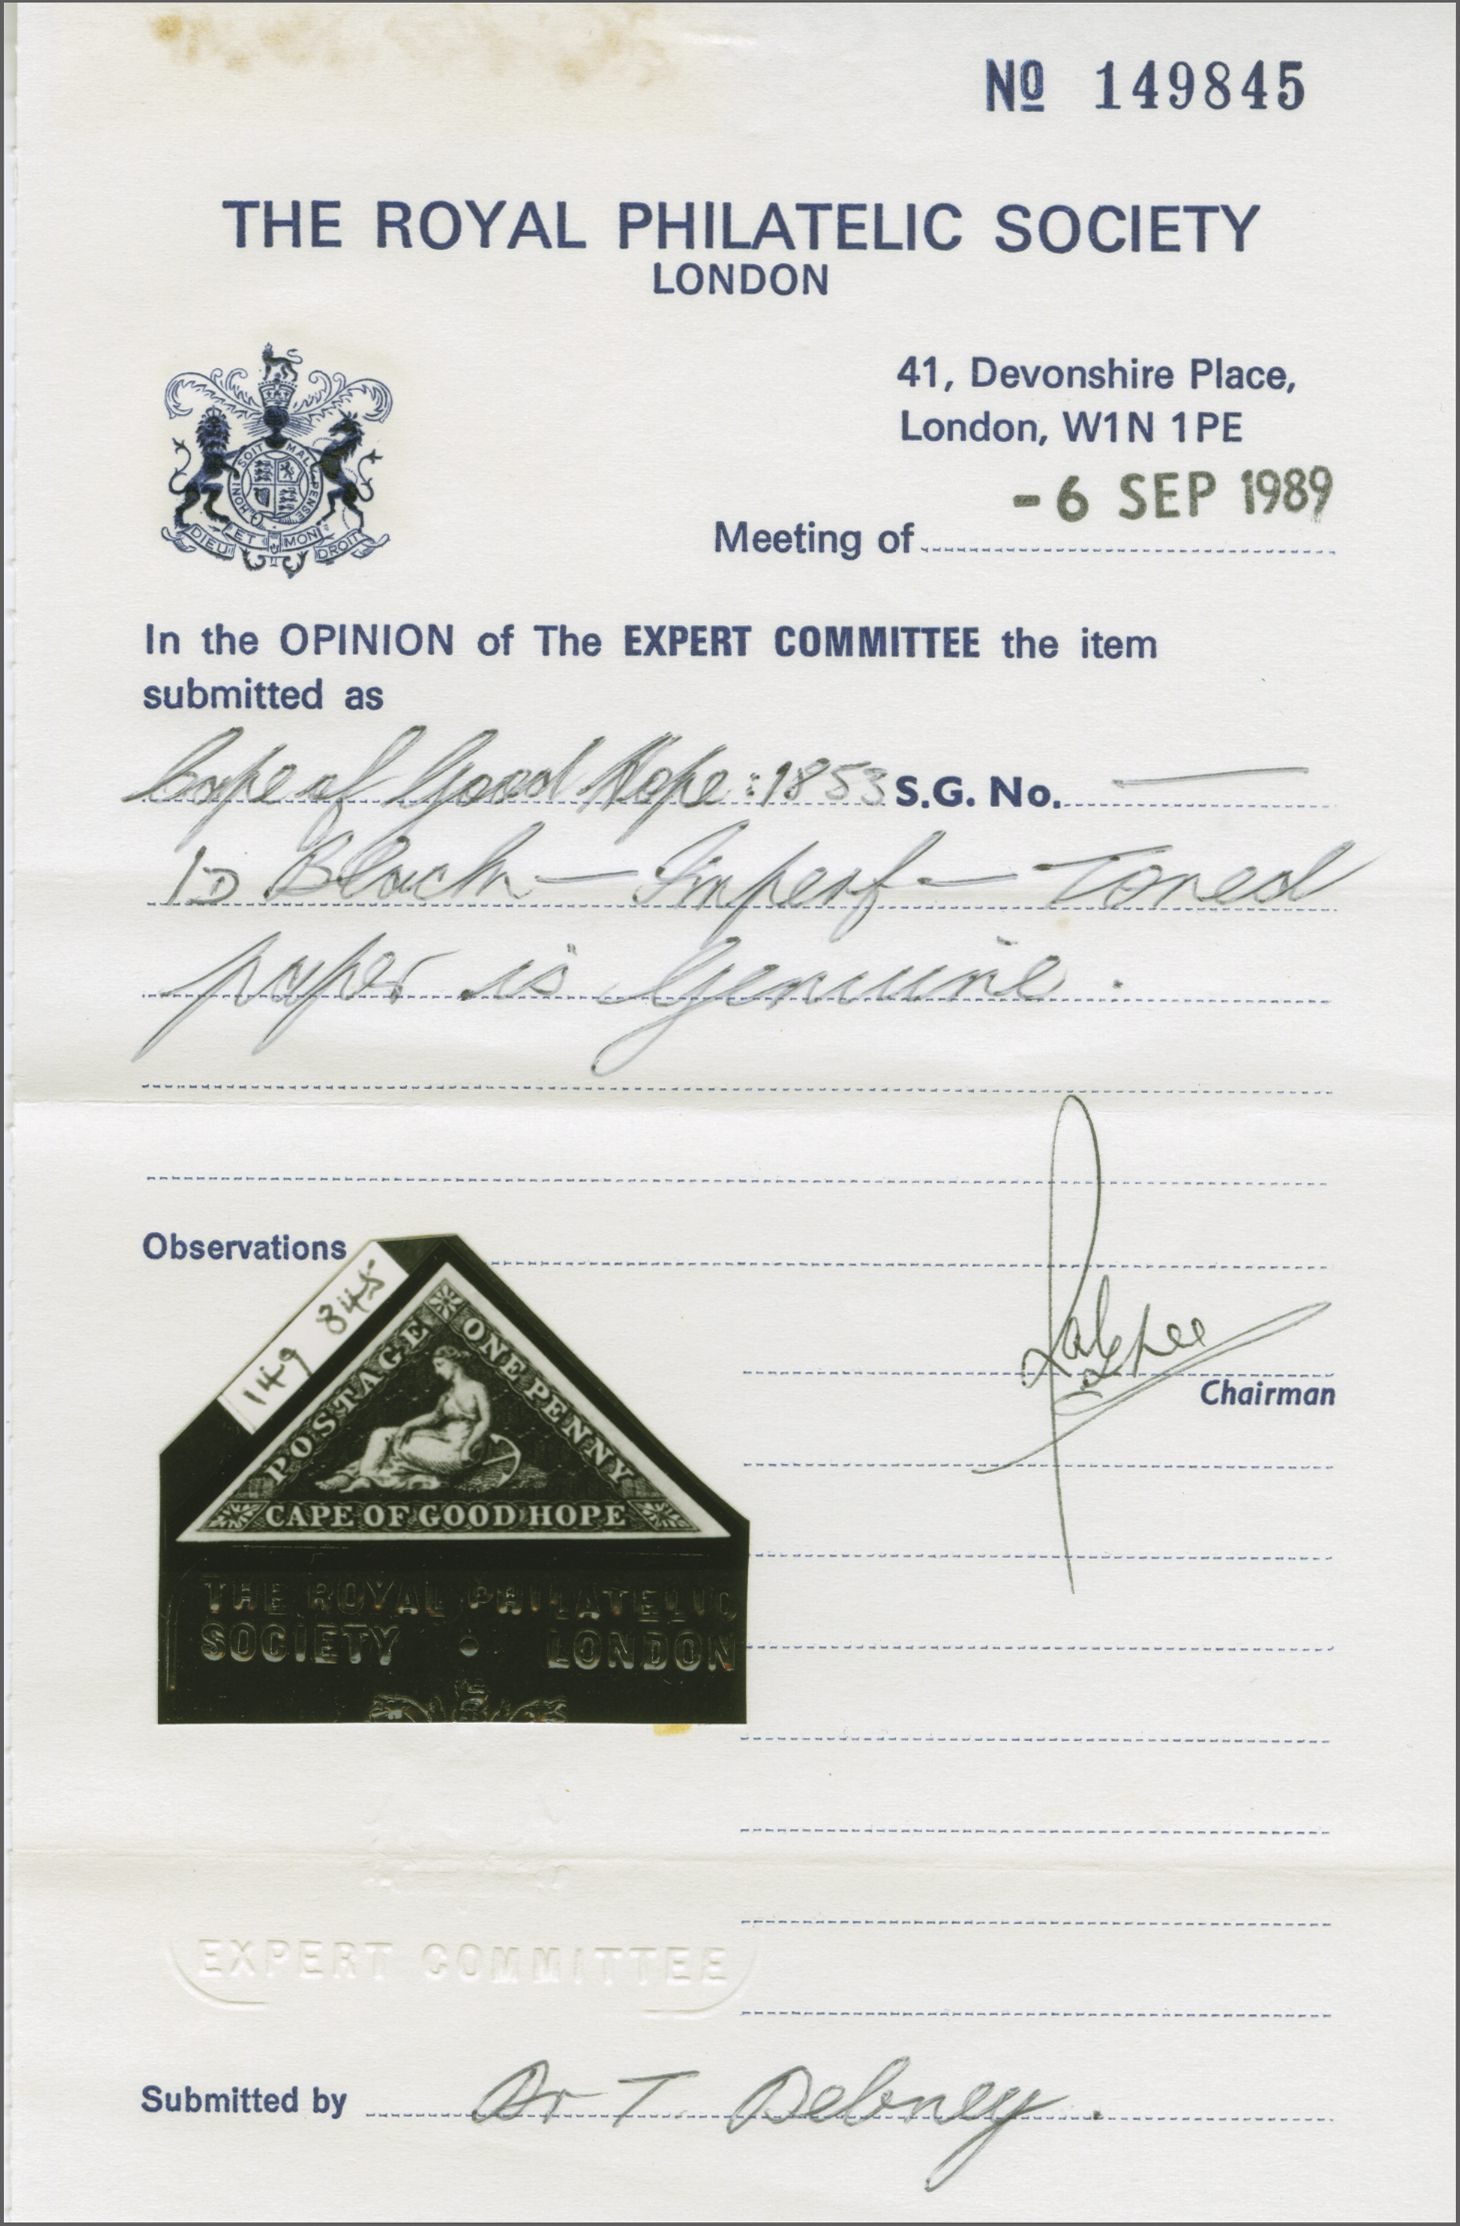 No 149845
THE ROYAL PHILATELIC SOCIETY
LONDON
41, Devonshire Place,
London, W1N 1PE
HONI SOIT MAL PENSE
DIEU ET MON DROIT
- 6 SEP 1989
Meeting of
In the OPINION of The EXPERT COMMITTEE the item
submitted as
Cape of Good Hope: 1853 S.G. No. —
1D Black — Imperf — Toned
paper is Genuine.
Observations
149 845
POSTAGE ONE PENNY
CAPE OF GOOD HOPE
Chairman
THE ROYAL PHILATELIC
SOCIETY • LONDON
EXPERT COMMITTEE
Submitted by Dr T. Debney.